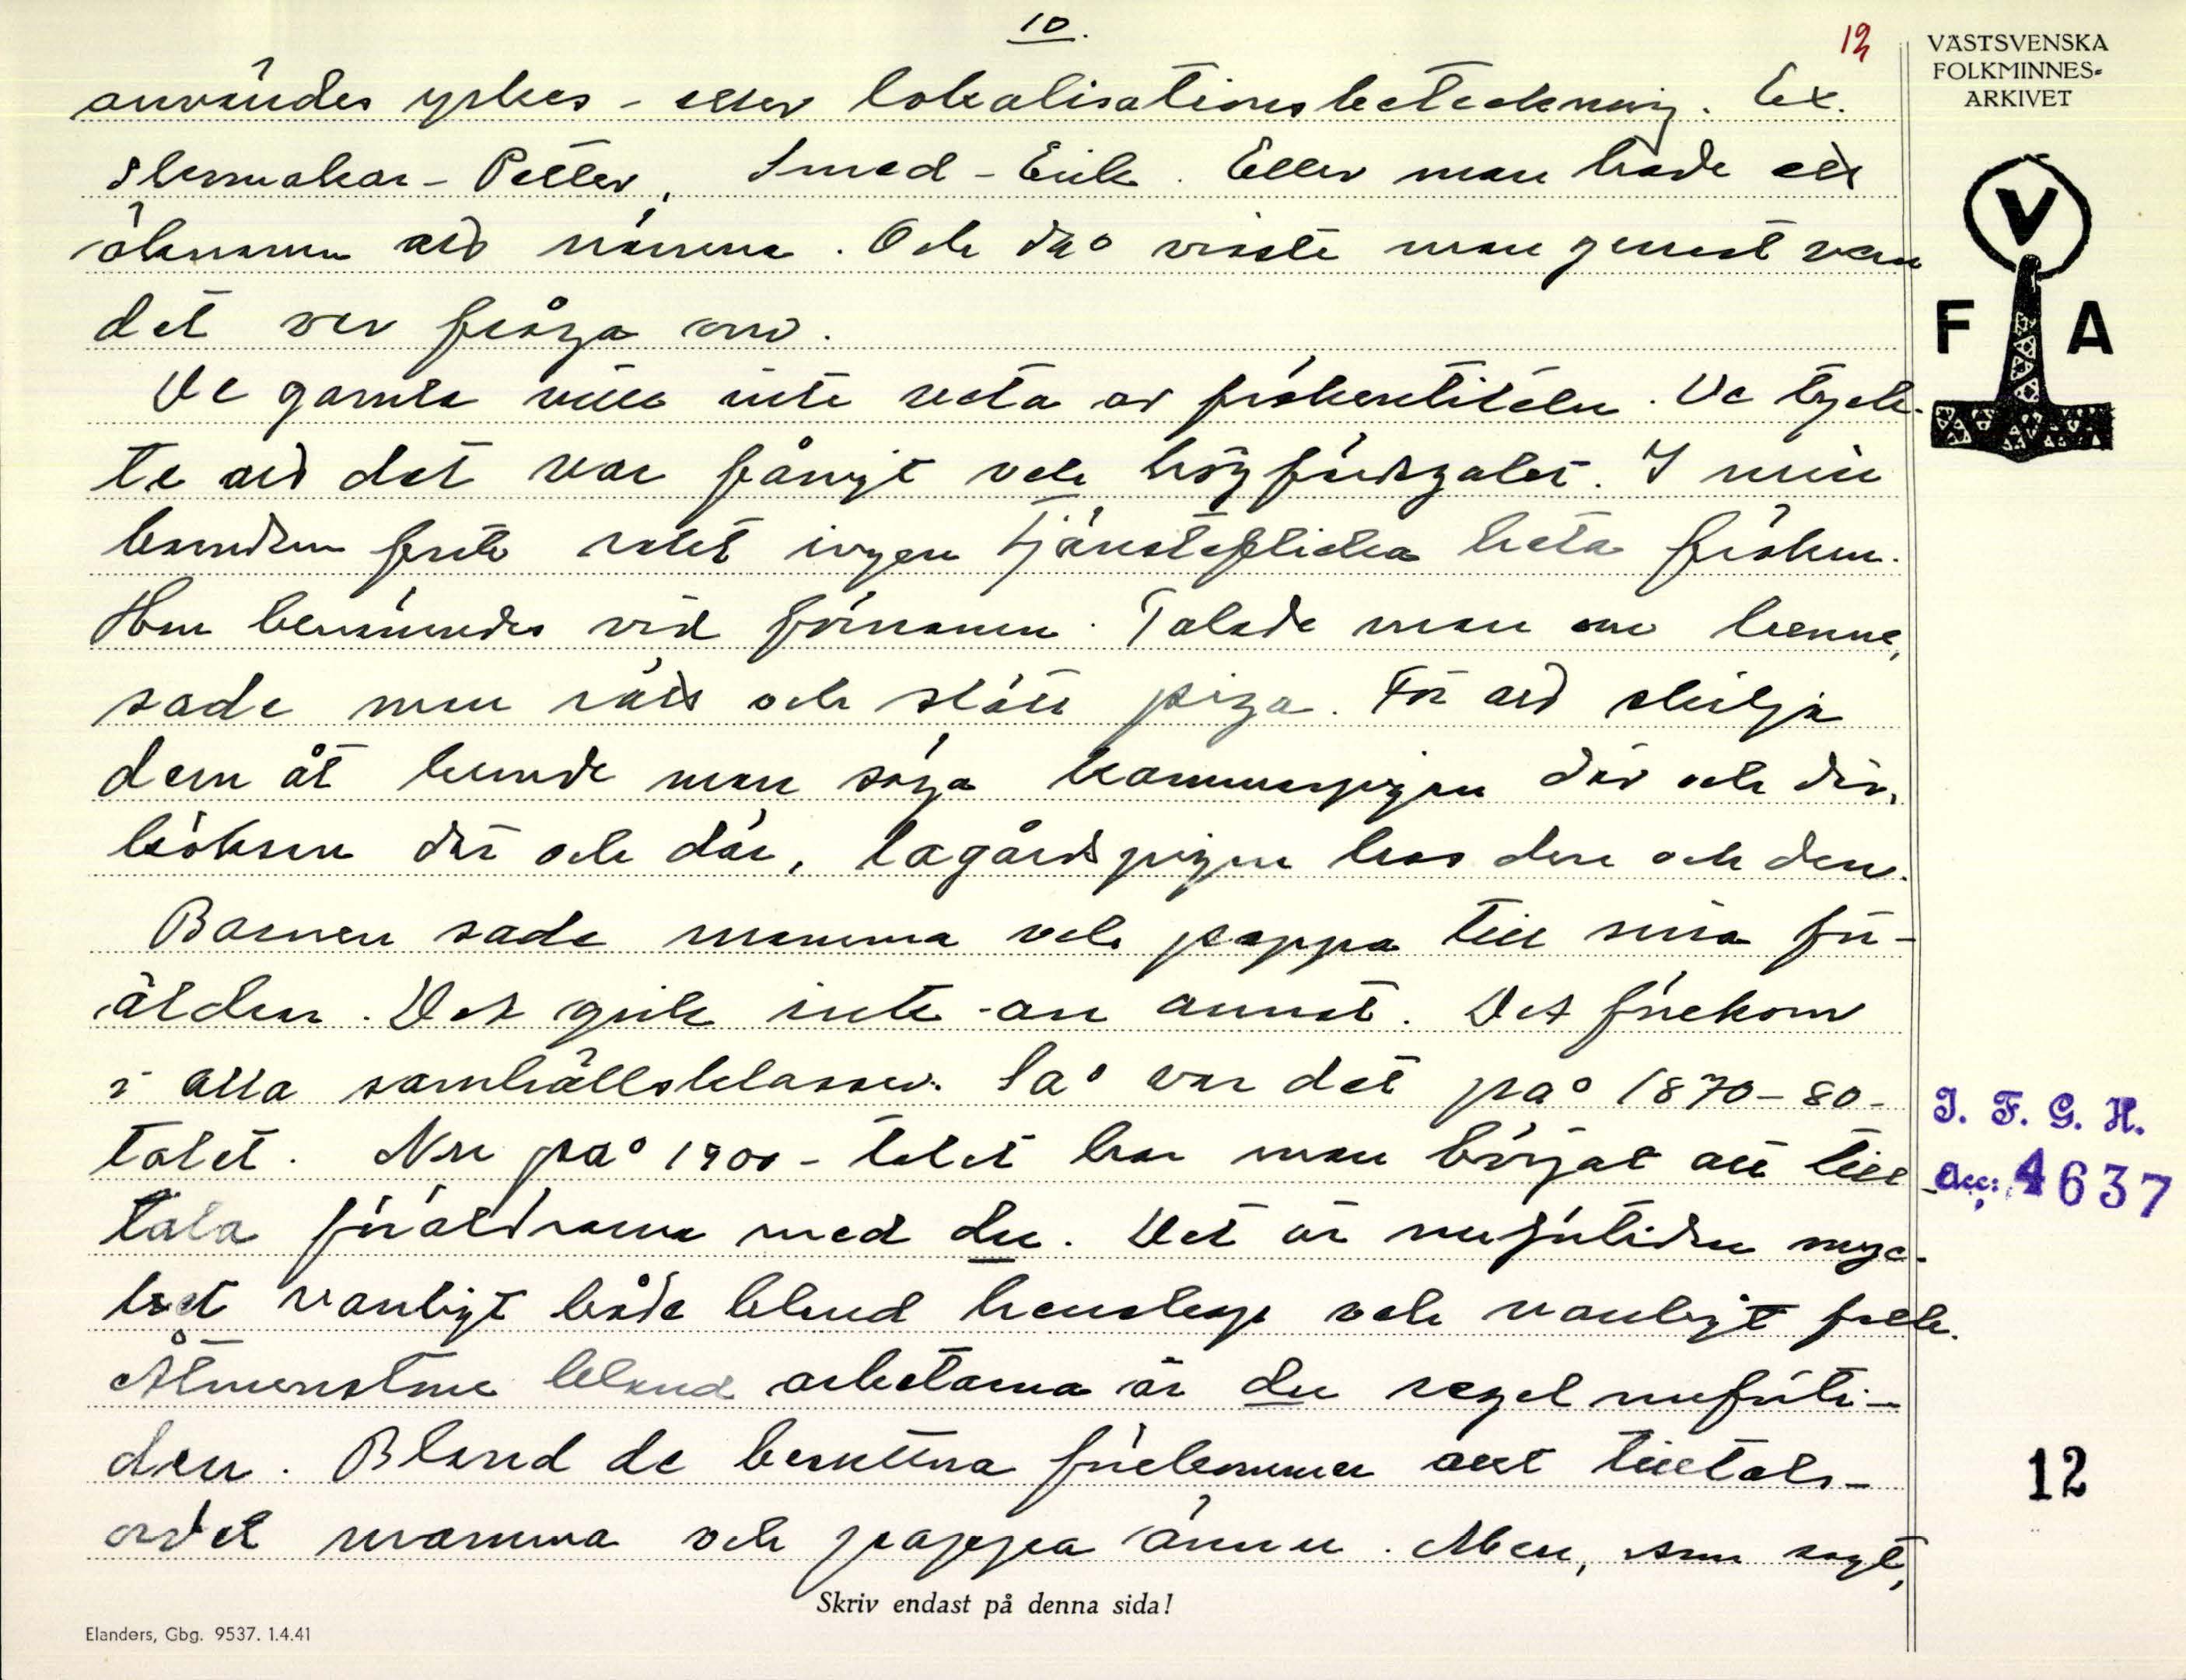 10.
12
VÄSTSVENSKA
FOLKMINNES-
ARKIVET
användes yrkes- eller lokalisationsbeteckning. Ex.
Skomakar-Petter, Smed-Erik. Eller man hade ett
öknamn att nämna. Och då visste man genast vem
det var fråga om.
De gamla ville inte veta av frökentiteln. De tyck-
te att det var fånigt och högfärdsgalet. I min
barndom fick ingen tjänsteflicka heta fröken.
Hon benämndes vid förnamn. Talade man om henne,
sade man rätt och slätt piga. För att skilja
dem åt kunde man säga kammarpigan där och där,
köksan där och där, lagårdspigan hos den och den.
Barnen sade mamma och pappa till sina för-
äldrar. Det gick inte an annat. Det förekom
i alla samhällsklasser. Så var det på 1870-80-
talet. Nu på 1900-talet har man börjat att till
tala föräldrarna med du. Det är nu för tiden myc-
ket vanligt både bland herrskap och vanligt folk.
Åtminstone bland arbetarna är du regel nuförti-
den. Bland de besuttna förekommer att tilltals-
ordet mamma och pappa ännu. Men, som sagt,
V
F A
I. F. G. H.
Acc: 4637
12
Skriv endast på denna sida!
Elanders, Gbg. 9537. 1.4.41